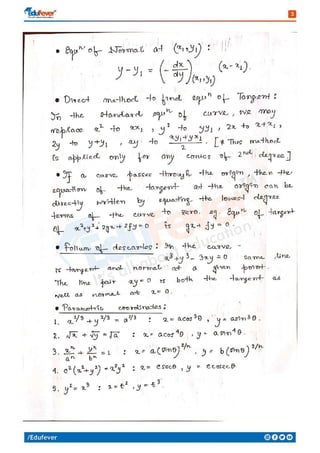 Edufever
3
• Equⁿ of Normal at (x₁,y₁) :
y-y₁ = (- dx/dy)(x₁,y₁) (x-x₁).
• Direct method to find equⁿ of Tangent:
In the standard equⁿ of curve, we may
replace x² to xx₁ , y² to yy₁ , 2x to x+x₁ ,
2y to y+y₁ , xy to (xy₁+yx₁)/2 . [* This method
is applied only for any conics of 2nd degree]
• If a curve passes through the origin, then the
equation of the tangent at the origin can be
directly written by equating the lowest degree
terms of the curve to zero. eg. Equⁿ of tangent
of x²+y²+2gx+2fy=0 is gx+fy=0
• Folium of descartes: In the curve -
x³+y³-3xy=0 same line
is tangent and normal at a given point.
The line pair xy=0 is both the tangent as
well as normal at x=0.
• Parametric coordinates:
1. x^2/3 + y^2/3 = a^2/3 : x = a cos³θ , y = a sin³θ.
2. √x + √y = √a : x = a cos⁴θ , y = a sin⁴θ.
3. xⁿ/aⁿ + yⁿ/bⁿ = 1 : x = a (sinθ)^2/n , y = b (sinθ)^2/n
4. c²(x²+y²) = x²y² : x = c secθ , y = c cosecθ
5. y² = x³ : x = t² , y = t³
/Edufever